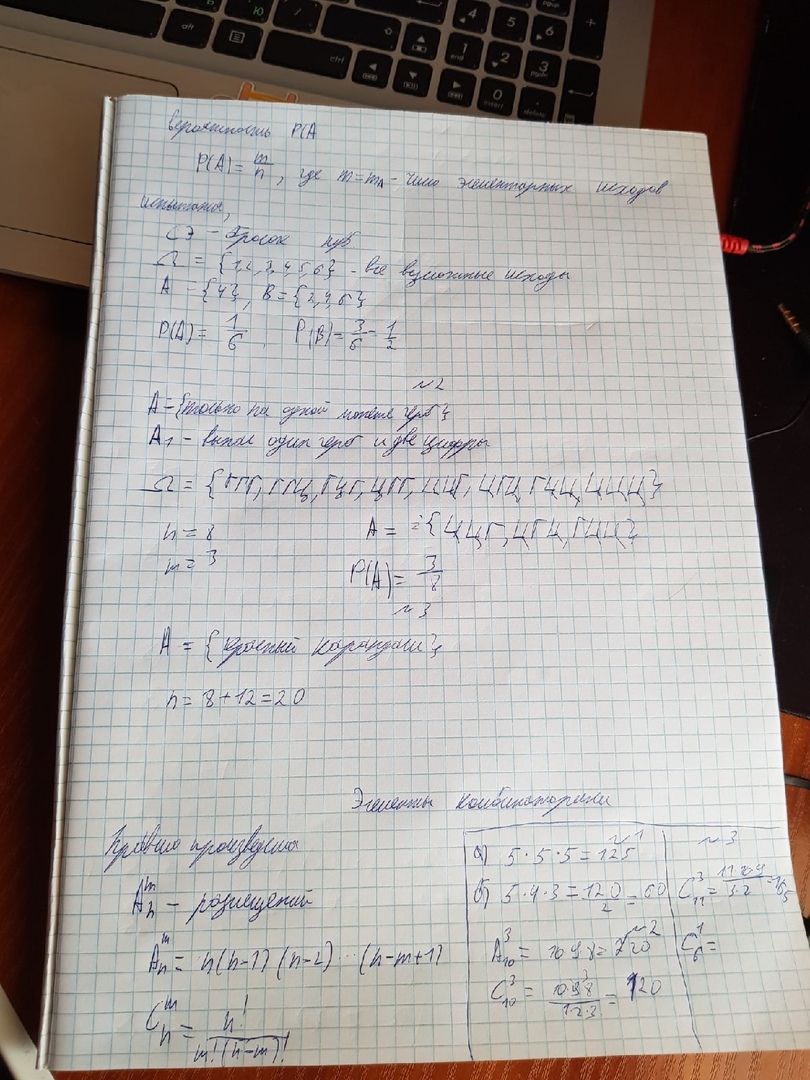 вероятность P(A
P(A) = m/n, где m = m_A - число элементарных исходов
испытания,
СЭ - бросок куб
Ω = {1,2,3,4,5,6} - все возможные исходы
A = {4}, B = {2,4,6}
P(A) = 1/6, P(B) = 3/6 = 1/2
№2
A = {только на одной монете герб}
A₁ - выпал один герб и две цифры
Ω = {ГГГ, ГГЦ, ГЦГ, ЦГГ, ЦЦГ, ЦГЦ, ГЦЦ, ЦЦЦ}
n = 8
A = {ЦЦГ, ЦГЦ, ГЦЦ}
m = 3
P(A) = 3/8
№3
A = {красный карандаш}
n = 8 + 12 = 20
Элементы комбинаторики
Правило произведения
A_n^m - размещений
A_n^m = n(n-1)(n-2)...(n-m+1)
C_n^m = n!/m!(n-m)!
№1
а) 5·5·5 = 125
б) 5·4·3 = 120/2 = 60
№2
A_10^3 = 10·9·8 = 720
C_10^3 = 10·9·8/1·2·3 = 120
№3
C_11^3 = 11·10·9/3·2 = 165
C_6^1 =
ctrl
alt
0
insert
1
end
2
3
pgdn
4
5
6
+